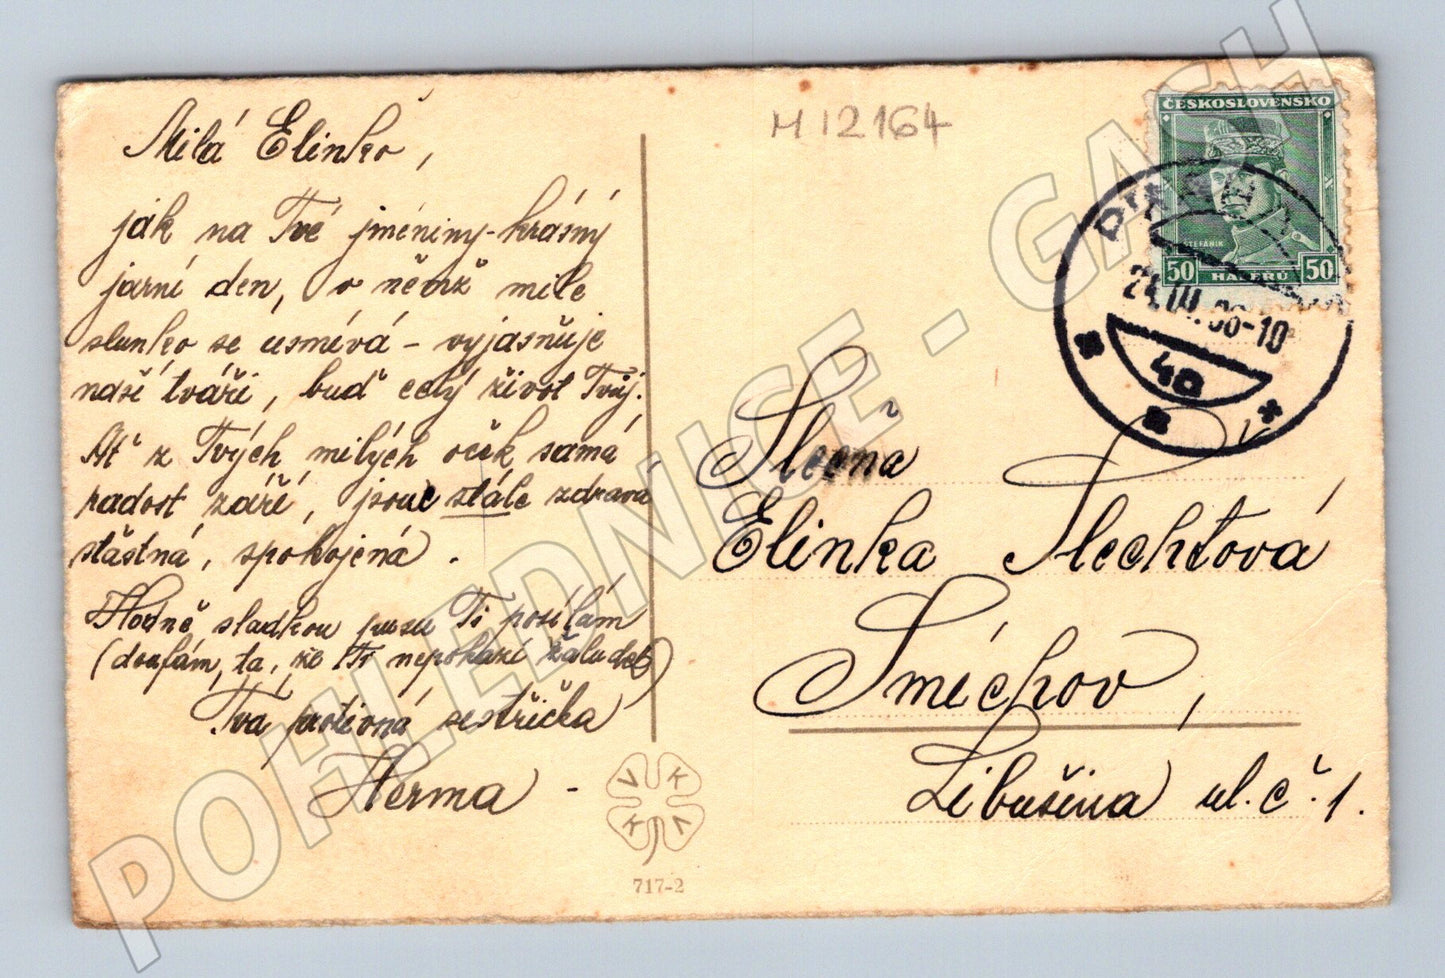 Milá Elinko,
jak na Tvé jméniny-krásný
jarní den, v němž milé
slunko se usmívá - vyjasňuje
naší tváři, buď celý život Tvůj.
Ať z Tvých milých oček samá
radost září, jsouc stále zdravá
šťastná, spokojená.
Hodně sladkou pusu Ti posílám
(doufám, ta, že Ti nepokazí žaludek)
Tvá protivná sestřička
Herma -
M 12164
ČESKOSLOVENSKO
ŠTEFÁNIK
50 HALÉŘŮ 50
-10
4a
Slečna
Elinka Šlechtová
Smíchov,
Libušina ul. č. 1.
V K K V
717-2
POHLEDNICE - GASH